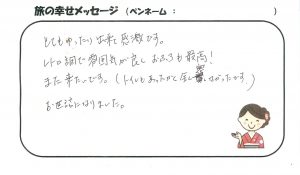 旅の幸せメッセージ（ペンネーム：　　　）
とてもゆったり出来て感激です。
レトロ調で雰囲気が良しおふろも最高！
また来たいです。（トイレもあったかくて良かったです）
お世話になりました。